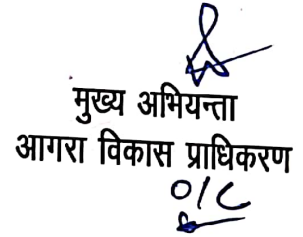 मुख्य अभियन्ता
आगरा विकास प्राधिकरण
O/C